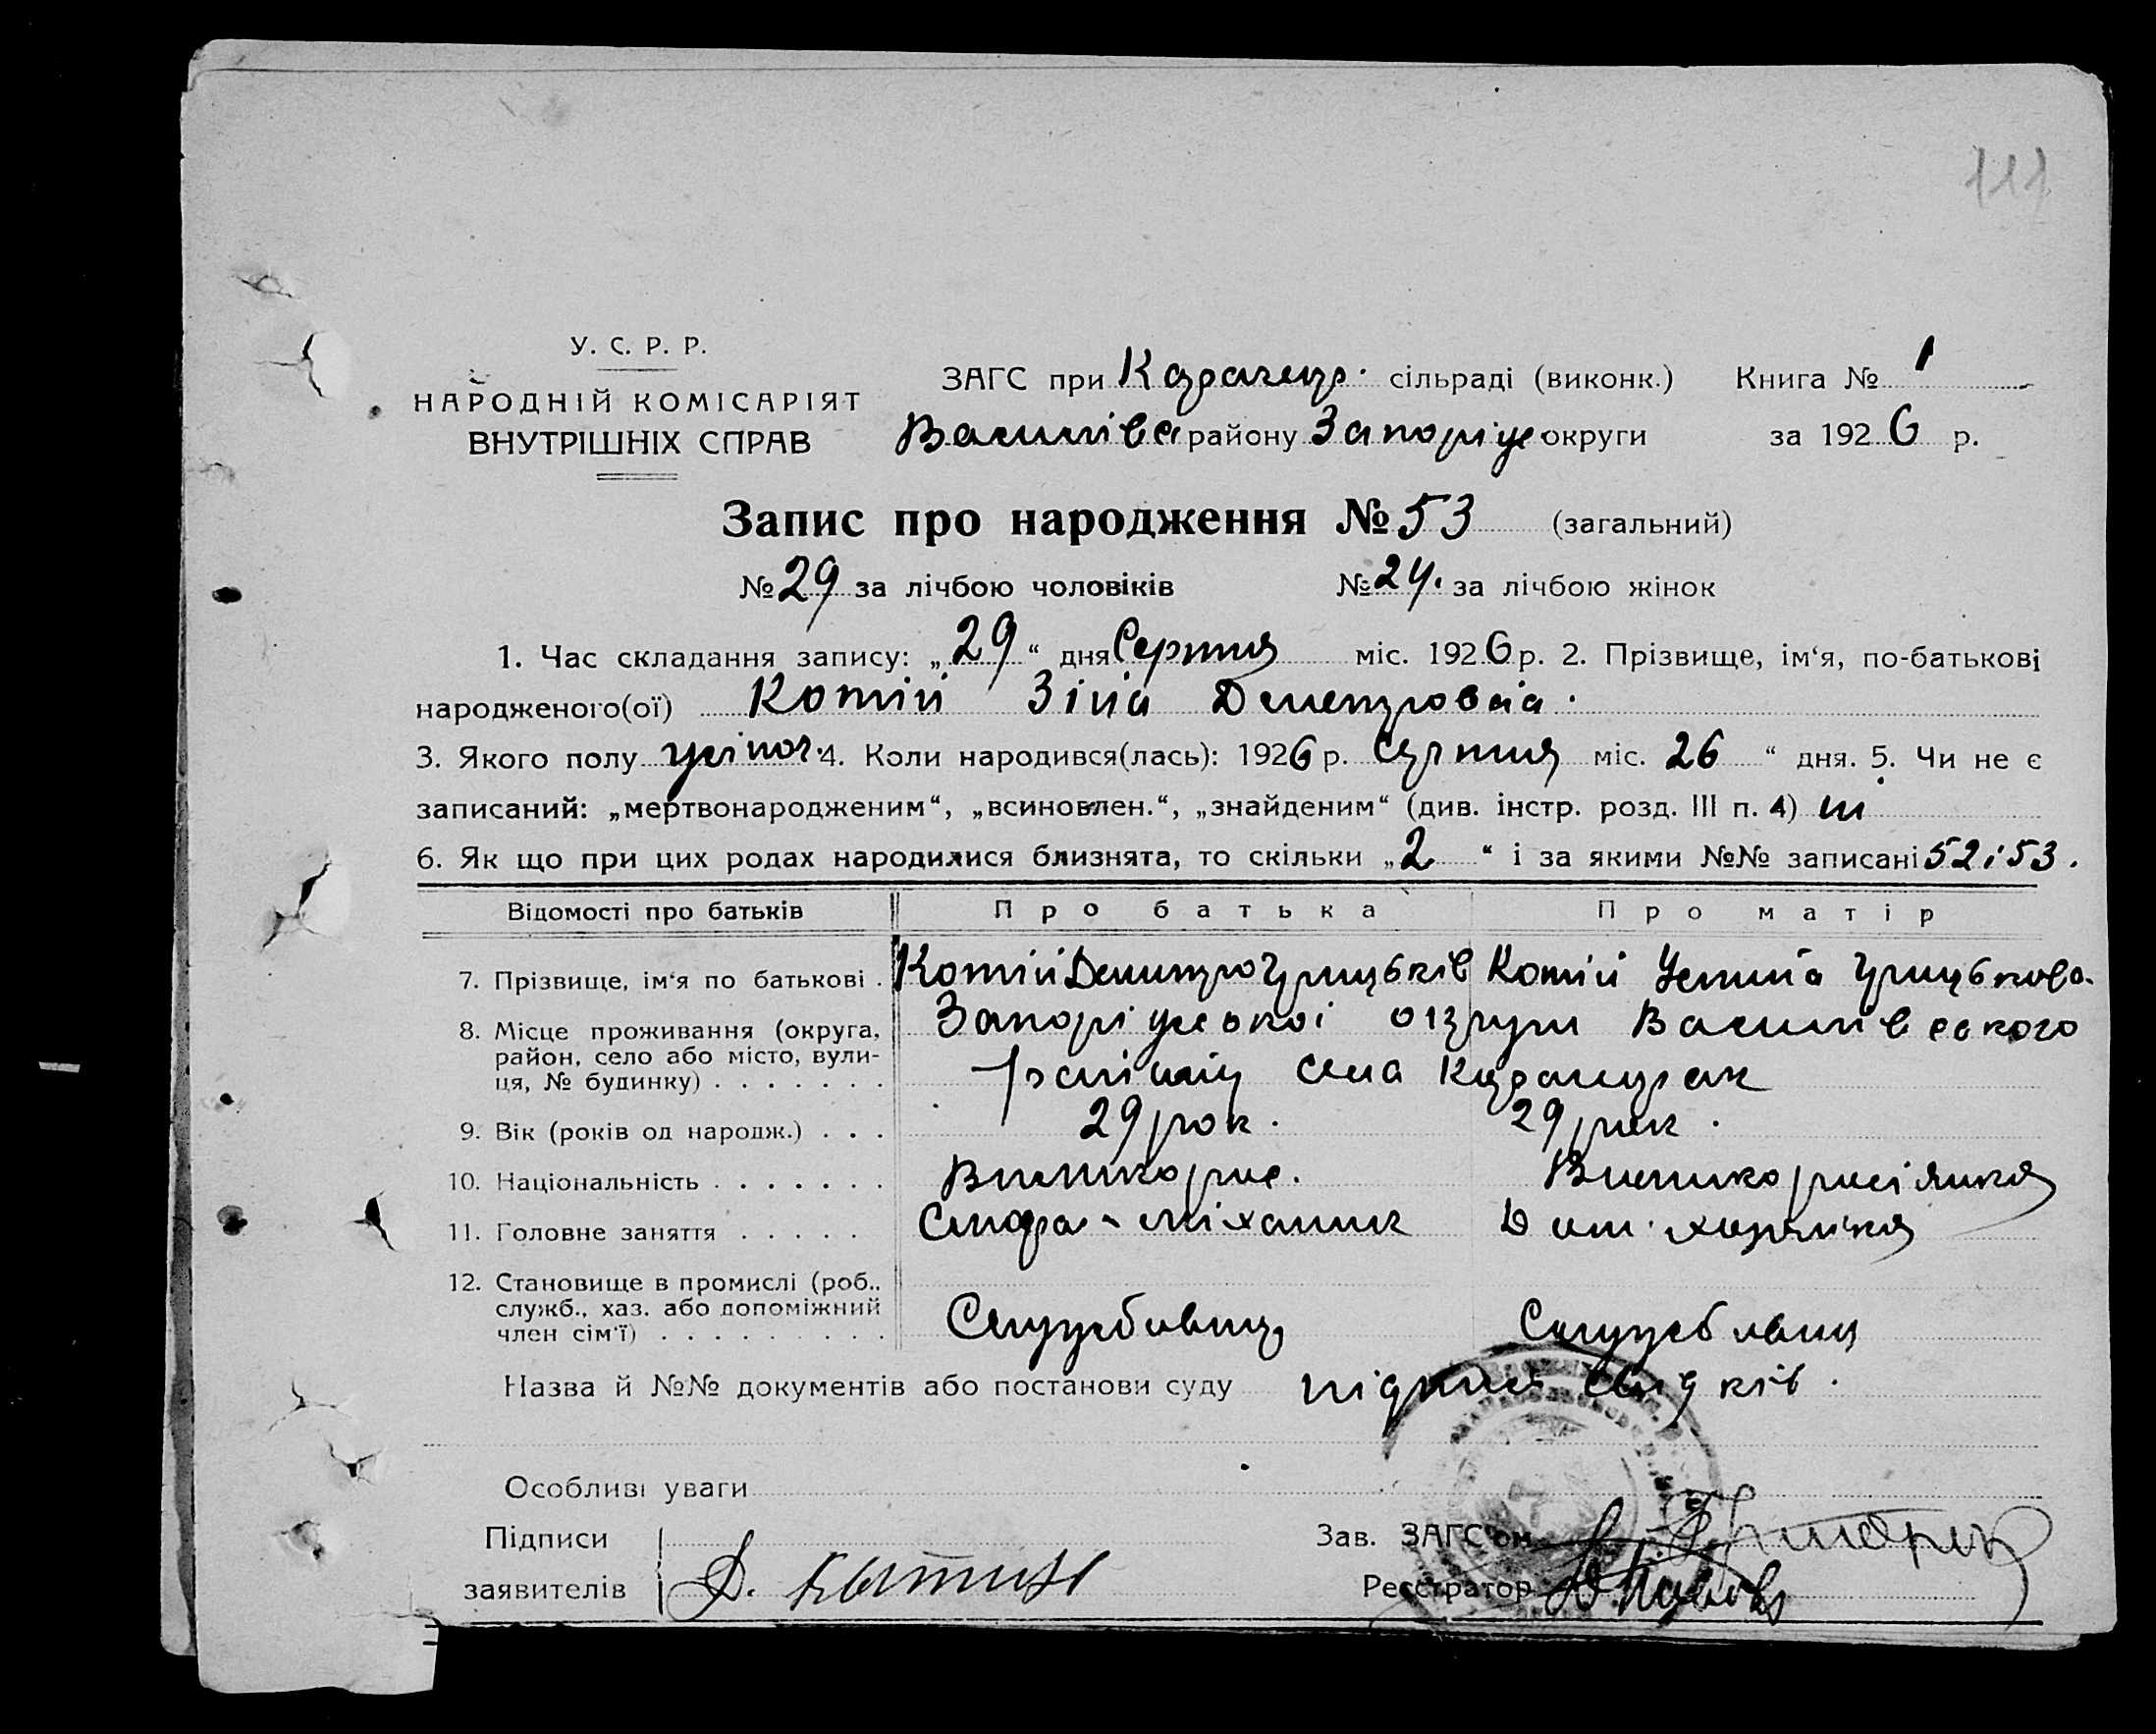 111
У. С. Р. Р.
НАРОДНІЙ КОМІСАРІЯТ
ВНУТРІШНІХ СПРАВ
ЗАГС при сільраді (виконк.) Книга № 1
Василівс району Запоріж округи за 1926 р.
Запис про народження № 53 (загальний)
№ 29 за лічбою чоловіків № 24. за лічбою жінок
1. Час складання запису: „29“ дня Серпня міс. 1926 р. 2. Прізвище, ім‘я, по-батькові
народженого(ої) Котій Зіна Деметровна.
3. Якого полу жіноч. 4. Коли народився(лась): 1926 р. Серпня міс. 26 “ дня. 5. Чи не є
записаний: „мертвонародженим“, „всиновлен.“, „знайденим“ (див. інстр. розд. III п. 4) ні
6. Як що при цих родах народилися близнята, то скільки „2“ і за якими №№ записані 52 і 53.
Відомості про батьків Про батька Про матір
7. Прізвище, ім‘я по батькові . Котій Демитро Грицьків Котій Грицькова.
8. Місце проживання (округа, район, село або місто, вулиця, № будинку) . . . . . . . Запоріжської округи Василівського
району села
9. Вік (років од народж.) . . . 29 рок. 29 рок.
10. Національність . . . . . . . Великорус. Великоросіянка
11. Головне заняття . . . . . міханик Дом. хазяйка
12. Становище в промислі (роб., служб., хаз. або допоміжний член сім‘ї) . . . . . . . . . . Службовиц Службовиц
Назва й №№ документів або постанови суду підписи свідків.
Особливі уваги
Підписи
заявителів Д. Котий
Зав. ЗАГС‘ом
Реєстратор